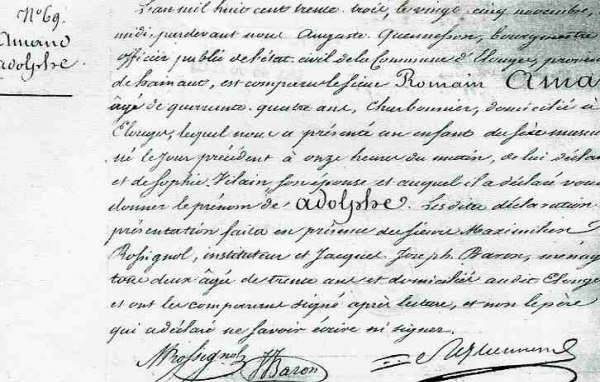 N.° 69.
Amand
Adolphe.
L'an mil huit cent trente trois, le vingt cinq novembre,
midi, pardevant nous Auguste Quenneson, bourgmestre
officier public de l'état civil de la Commune d'Elouges, provin
de hainaut, est comparu le sieur Romain Ama
âgé de quarante quatre ans, Charbonnier, domicilié à
Elouges, lequel nous a présenté un enfant du sexe mascu
né le jour précédent à onze heures du matin, de lui déclar
et de Sophie Vilain son épouse et auquel il a déclaré vou
donner le prénom de Adolphe. Les dites déclaration
présentation faites en présence des sieurs Maximilien
Rossignol, instituteur et Jacques Joseph Baron, ménag
tous deux âgé de trente ans et domiciliés audit Elouges
et ont les comparans signé après lecture, et non le père
qui a déclaré ne savoir écrire ni signer.
MRossignol JJBaron